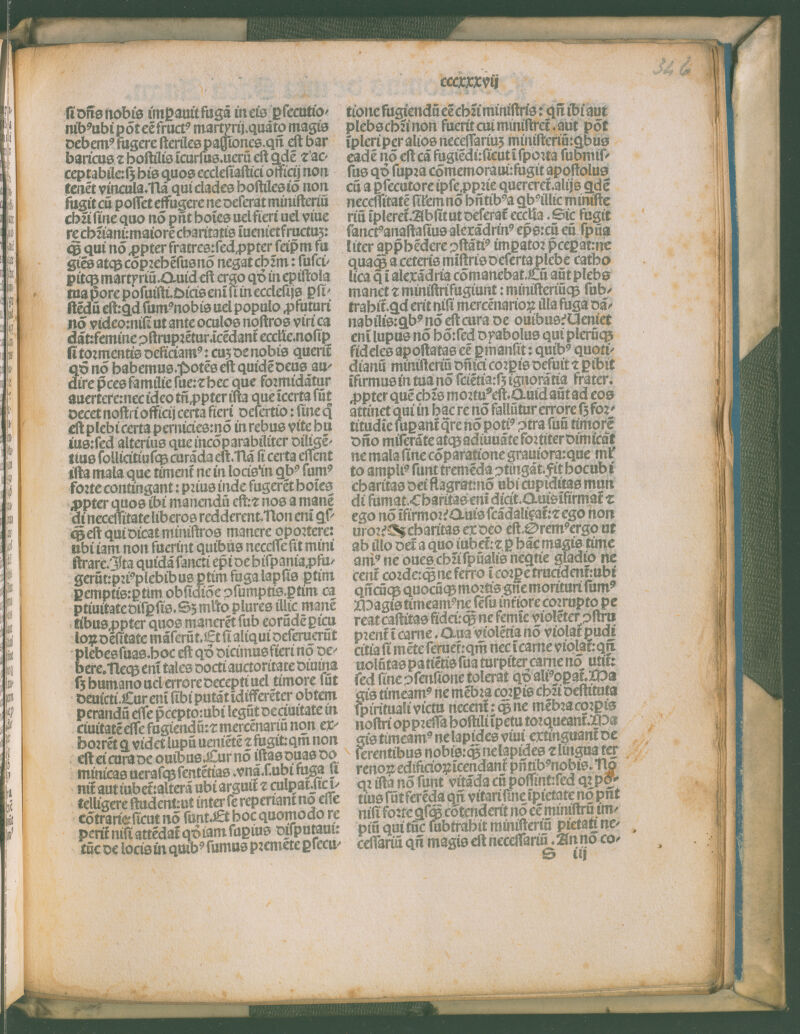 346
cccxxxvij
si dñs nobis impauit fugã in eis ꝑsecutio-
nibꝰubi põt eẽ fructꝰ martyrij.quãto magis
debemꝰ fugere steriles passiones.qñ est bar
baricus ⁊ hostilis ĩcursus.uerũ est qdẽ ⁊ ac-
ceptabile:sꝫ his quos ecclesiastici officij non
tenẽt vincula.Nã qui clades hostiles iõ non
fugit cũ posset effugere ne deserat ministeriũ
chr̃i sine quo nõ pñt hoĩes uel fieri uel viue
re chr̃iani:maiorẽ charitatis ĩueniet fructuꝫ:
qꝫ qui nõ ꝓpter fratres:sed,ꝓpter seipm̃ fu
giẽs atqꝫ cõprehẽsusnõ negat chr̃m : susci-
pitqꝫ martyriũ.Quid est ergo qõ in epistola
tua pore posuisti.Dicis enĩ si in ecclesijs ꝑsi-
stẽdũ est:qd sumꝰnobis uel populo ,ꝓfuturi
nõ video:nisi ut ante oculos nostros viri ca
dãt:femine ↄstruprẽtur.ĩcẽdant eccłie.nosip̃
si tormentis deficiamꝰ: cuꝫ de nobis querit̃
qõ nõ habemus.Potẽs est quidẽ deus au-
dire p̃ces familie sue:⁊ hec que formidãtur
auertere:nec ideo tñ,ꝓpter ista que ĩcerta sũt
decet nostri officij certa fieri desertio : sine q̃
est plebi certa pernicies:nõ in rebus vite hu
ius:sed alterius que incõparabiliter diligẽ-
tius sollicitiusqꝫ curãda est.Nã si certa essent
ista mala que timent̃ ne in locis in qbꝰ sumꝰ
forte contingant : prius inde fugerẽt hoĩes
,ꝓpter quos ibi manendũ est:⁊ nos a manẽ
di necessitate liberos redderent.Non enĩ qs-
qꝫ est qui dicat ministros manere oportere:
ubi iam non fuerint quibus necesse sit mini
strare.Ita quidã sancti ep̃i de hispania,ꝓfu-
gerũt:priꝰplebibus ꝑtim fuga lapsis ꝑtim
ꝑemptis:ꝑtim obsidiõe ↄsumptis.ꝑtim ca
ptiuitate disꝑsis.Sꝫ mľto plures illic manẽ
tibus,ꝓpter quos manerẽt sub eorũdẽ ꝑicu
loꝝ dẽsitate mãserũt.Et si aliqui deseruerũt
plebes suas.hoc est qõ dicimus fieri nõ de-
bere.Neqꝫ enĩ tales docti auctoritate diuina
sꝫ humano uel errore decepti uel timore sũt
deuicti.Cur enĩ sibi putãt ĩdifferẽter obtem
perandũ esse p̃cepto:ubi legũt de ciuitate in
ciuitatẽ esse fugiendũ:⁊ mercẽnariũ non ex-
horrẽt q videt lupũ ueniẽtẽ ⁊ fugit:qm̃ non
est ei cura de ouibus.Cur nõ istas duas do
minicas uerasqꝫ sentẽtias .vnã.s.ubi fuga si
nit̃ aut iubet̃:alterã ubi arguit̃ ⁊ culpat̃.sic ĩ-
telligere student:ut inter se reperiant̃ nõ esse
cõtrarie:sicut nõ sunt.Et hoc quomodo re
perit̃ nisi attẽdat̃ qõ iam suꝑius disputaui:
tũc de locis in quibꝰ sumus premẽte ꝑsecu-
tione fugiendũ eẽ chr̃i ministris: qñ ibi aut
plebs chr̃i non fuerit cui ministret̃ .aut põt
ĩpleri per alios necessariuꝫ ministeriũ:qbus
eadẽ nõ est cã fugiẽdi:sicut ĩ sporta submis-
sus qõ supra cõmemoraui:fugit apostolus
cũ a ꝑsecutore ipse,ꝓprie quereret̃.alijs qdẽ
necessitatẽ sił̃em nõ hñtibꝰa qbꝰillic ministe
riũ ĩpleret̃.Absit ut deserat̃ ecclia .Sic fugit
sanctꝰanastasius alexãdrinꝰ ep̃s:cũ eũ sp̃ua
liter app̃hẽdere ↄstãtiꝰ imꝑator p̃ceꝑat:ne
quaqꝫ a ceteris mĩstris deserta plebe catho
lica q̃ ĩ alexãdria cõmanebat.Cũ aũt plebs
manet ⁊ ministri fugiunt : ministeriũqꝫ sub-
trahit̃.qd erit nisi mercẽnarioꝝ illa fuga dã-
nabilis:qbꝰ nõ est cura de ouibus?Ueniet
enĩ lupus nõ hõ:sed dyabolus qui plerũqꝫ
fideles apostatas eẽ ꝑmansit : quibꝰ quoti-
dianũ ministeriũ dñici corꝑis defuit ⁊ ꝑibit
ĩfirmus in tua nõ sciẽtia:sꝫ ignorãtia frater.
,ꝓpter quẽ chr̃s mortuꝰest.Quid aũt ad eos
attinet qui in hac re nõ fallũtur errore sꝫ for-
titudĩe suꝑant̃ q̃re nõ potiꝰ ↄtra suũ timorẽ
dño miserãte atqꝫ adiuuãte fortiter dimicãt
ne mala sine cõparatione grauiora:que ml̃
to ampliꝰ sunt tremẽda ↄtingãt.Fit hoc ubi
charitas dei flagrat:nõ ubi cupiditas mun
di fumat.Charitas enĩ dicit.Quis ĩfirmat̃ ⁊
ego nõ ĩfirmor?Quis scãdaliꝫat̃:⁊ ego non
uror?Sꝫ charitas ex deo est.Oremꝰergo ut
ab illo det̃ a quo iubet̃:⁊ ꝑ hãc magis time
amꝰ ne oues chr̃i sp̃ualis neqtie gladio ne
cent̃ corde:qꝫ ne ferro ĩ corꝑe trucident̃:ubi
qñcũqꝫ quocũqꝫ mortis gñe morituri sumꝰ
Magis timeamꝰne sẽsu intĩore corrupto pe
reat castitas fidei:qꝫ ne femie violẽter ↄstru
prent̃ ĩ carne . Qua violẽtia nõ violat̃ pudi
citia si mẽte seruet̃:qm̃ nec ĩ carne violat̃:qñ
uolũtas patiẽtis sua turpiter carne nõ utit̃:
sed sine ↄsensione tolerat qõ aliꝰoꝑat̃.Ma
gis timeamꝰ ne mẽbra corꝑis chr̃i destituta
spirituali victu necent̃ : qꝫ ne mẽbra corꝑis
nostri oppressa hostili ĩpetu torqueant̃.Ma
gis timeamꝰ ne lapides viui extinguant̃ de
serentibus nobis:qꝫ ne lapides ⁊ lingua ter
renoꝝ edificioꝝ ĩcendant̃ pñtibꝰnobis.Nõ
qꝛ ista nõ sunt vitãda cũ possint:sed qꝛ po-
tius sũt ferẽda qñ vitari sine ĩpietate nõ pñt
nisi forte qsqꝫ cõtenderit nõ eẽ ministrũ im-
piũ qui tũc subtrahit ministeriũ pietati ne-
cessariũ qñ magis est necessariũ .An nõ co-
S iij